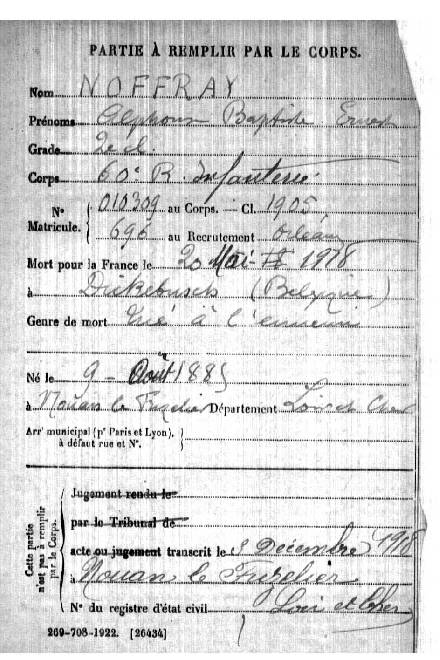 PARTIE À REMPLIR PAR LE CORPS.
Nom NOFFRAY
Prénoms Alphonse Baptiste Ernest
Grade 2e cl.
Corps 60e R. Infanterie
N° Matricule. { 010309 au Corps. — Cl. 1905
696 au Recrutement Orléans
Mort pour la France le 20 Mai 1918
à Dickebusch (Belgique)
Genre de mort Tué à l'ennemi
Né le 9 - Août 1885
à Nouan le Fuzelier Département Loir et Cher
Arrt municipal (pr Paris et Lyon), }
à défaut rue et N°.
Cette partie n'est pas à remplir par le Corps.
Jugement rendu le
par le Tribunal de
acte ou jugement transcrit le 8 Décembre 1918
à Nouan le Fuzelier
N° du registre d'état civil Loir et Cher
269-708-1922. [26434]